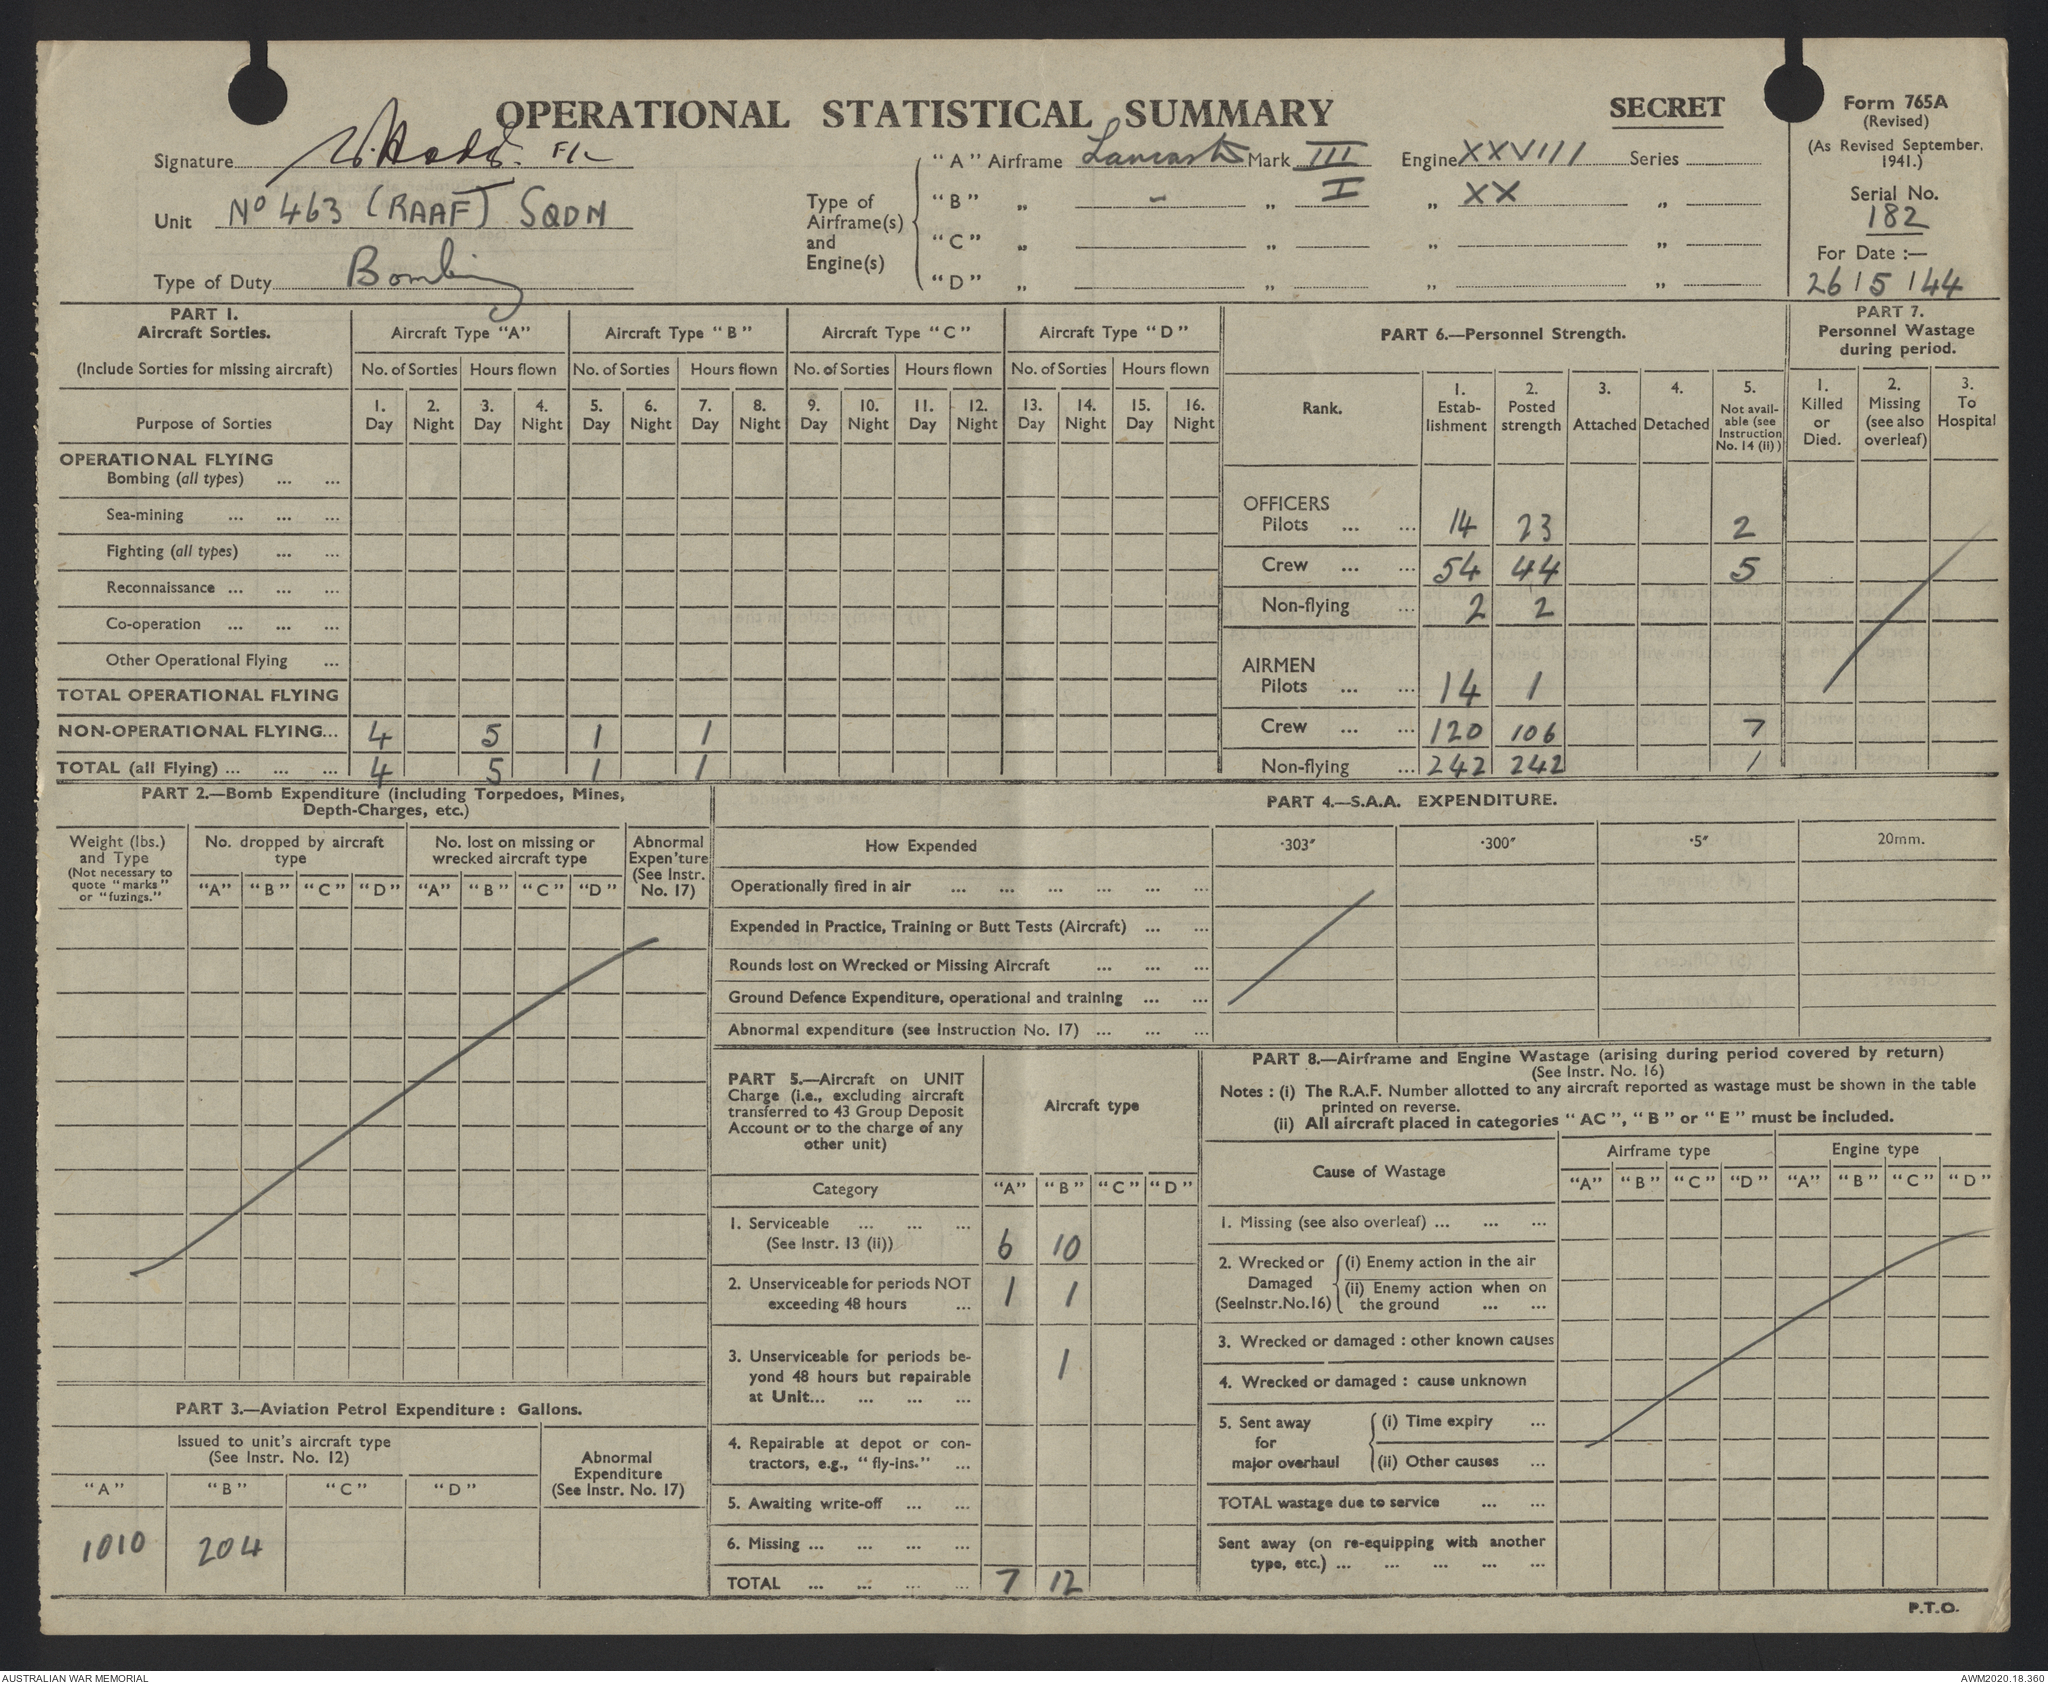 OPERATIONAL STATISTICAL SUMMARY
SECRET
Form 765A
(Revised)
(As Revised September, 1941.)
Serial No.
182
For Date :—
26/5/44
Signature F/L
Unit No 463 (RAAF) SQDN
Type of Duty Bombing
Type of Airframe(s) and Engine(s)
"A" Airframe Lancaster Mark III Engine XXVIII Series
"B" „ - „ I „ XX „
"C" „ „ „ „
"D" „ „ „ „
PART 1.
Aircraft Sorties.
(Include Sorties for missing aircraft)
Aircraft Type "A" Aircraft Type "B" Aircraft Type "C" Aircraft Type "D"
No. of Sorties Hours flown No. of Sorties Hours flown No. of Sorties Hours flown No. of Sorties Hours flown
Purpose of Sorties
1. Day 2. Night 3. Day 4. Night 5. Day 6. Night 7. Day 8. Night 9. Day 10. Night 11. Day 12. Night 13. Day 14. Night 15. Day 16. Night
OPERATIONAL FLYING
Bombing (all types) ... ...
Sea-mining ... ... ...
Fighting (all types) ... ...
Reconnaissance ... ... ...
Co-operation ... ... ...
Other Operational Flying ...
TOTAL OPERATIONAL FLYING
NON-OPERATIONAL FLYING... 4 5 1 1
TOTAL (all Flying) ... ... ... 4 5 1 1
PART 6.—Personnel Strength.
Rank.
1. Estab-lishment
2. Posted strength
3. Attached
4. Detached
5. Not avail-able (see Instruction No. 14 (ii))
OFFICERS
Pilots ... ... 14 23 2
Crew ... ... 54 44 5
Non-flying ... 2 2
AIRMEN
Pilots ... ... 14 1
Crew ... ... 120 106 7
Non-flying ... 242 242 1
PART 7.
Personnel Wastage during period.
1. Killed or Died.
2. Missing (see also overleaf)
3. To Hospital
PART 2.—Bomb Expenditure (including Torpedoes, Mines,
Depth-Charges, etc.)
Weight (lbs.) and Type
(Not necessary to quote "marks" or "fuzings."
No. dropped by aircraft type
No. lost on missing or wrecked aircraft type
Abnormal Expen'ture (See Instr. No. 17)
"A" "B" "C" "D" "A" "B" "C" "D"
PART 3.—Aviation Petrol Expenditure : Gallons.
Issued to unit's aircraft type
(See Instr. No. 12)
Abnormal Expenditure
(See Instr. No. 17)
"A" "B" "C" "D"
1010 204
PART 4.—S.A.A. EXPENDITURE.
How Expended ·303" ·300" ·5" 20mm.
Operationally fired in air ... ... ... ... ... ...
Expended in Practice, Training or Butt Tests (Aircraft) ... ...
Rounds lost on Wrecked or Missing Aircraft ... ... ...
Ground Defence Expenditure, operational and training ... ...
Abnormal expenditure (see Instruction No. 17) ... ... ...
PART 5.—Aircraft on UNIT
Charge (i.e., excluding aircraft
transferred to 43 Group Deposit
Account or to the charge of any
other unit)
Aircraft type
Category "A" "B" "C" "D"
1. Serviceable ... ... ...
(See Instr. 13 (ii)) 6 10
2. Unserviceable for periods NOT
exceeding 48 hours ... 1 1
3. Unserviceable for periods be-
yond 48 hours but repairable 1
at Unit... ... ... ...
4. Repairable at depot or con-
tractors, e.g., "fly-ins." ...
5. Awaiting write-off ... ...
6. Missing ... ... ... ...
TOTAL ... ... ... ... 7 12
PART 8.—Airframe and Engine Wastage (arising during period covered by return)
(See Instr. No. 16)
Notes : (i) The R.A.F. Number allotted to any aircraft reported as wastage must be shown in the table
printed on reverse.
(ii) All aircraft placed in categories "AC", "B" or "E" must be included.
Cause of Wastage
Airframe type Engine type
"A" "B" "C" "D" "A" "B" "C" "D"
1. Missing (see also overleaf) ... ... ...
2. Wrecked or Damaged (SeeInstr.No.16)
(i) Enemy action in the air
(ii) Enemy action when on
the ground ... ...
3. Wrecked or damaged : other known causes
4. Wrecked or damaged : cause unknown
5. Sent away for major overhaul
(i) Time expiry ...
(ii) Other causes ...
TOTAL wastage due to service ... ...
Sent away (on re-equipping with another
type, etc.) ... ... ... ... ...
P.T.O.
AUSTRALIAN WAR MEMORIAL
AWM2020.18.360